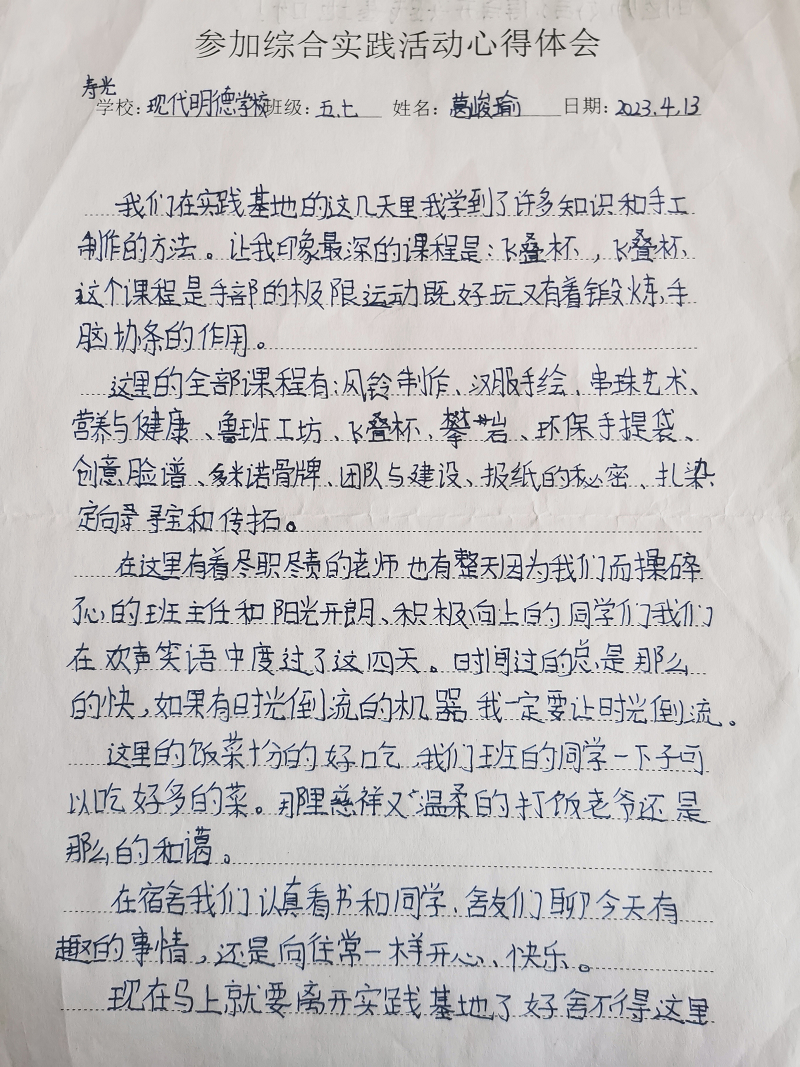 参加综合实践活动心得体会
寿光
学校：现代明德学校班级：五.七 姓名：葛峻瑜 日期：2023.4.13
我们在实践基地的这几天里我学到了许多知识和手工
制作的方法。让我印象最深的课程是：飞叠杯，飞叠杯
这个课程是手部的极限运动既好玩又有着锻炼手
脑协条的作用。
这里的全部课程有：风铃制作、汉服手绘、串珠艺术、
营养与健康、鲁班工坊、飞叠杯、攀岩、环保手提袋、
创意脸谱、多米诺骨牌、团队与建设、报纸的秘密、扎染
定向寻宝和传拓。
在这里有着尽职尽责的老师也有整天因为我们而操碎
心的班主任和阳光开朗、积极向上的同学们我们
在欢声笑语中度过了这四天。时间过的总是那么
的快，如果有时光倒流的机器我一定要让时光倒流。
这里的饭菜十分的好吃我们班的同学一下子可
以吃好多的菜。那慈祥又温柔的打饭老爷还是
那么的和蔼。
在宿舍我们认真看书和同学、舍友们聊今天有
趣的事情，还是向往常一样开心、快乐。
现在马上就要离开实践基地了好舍不得这里